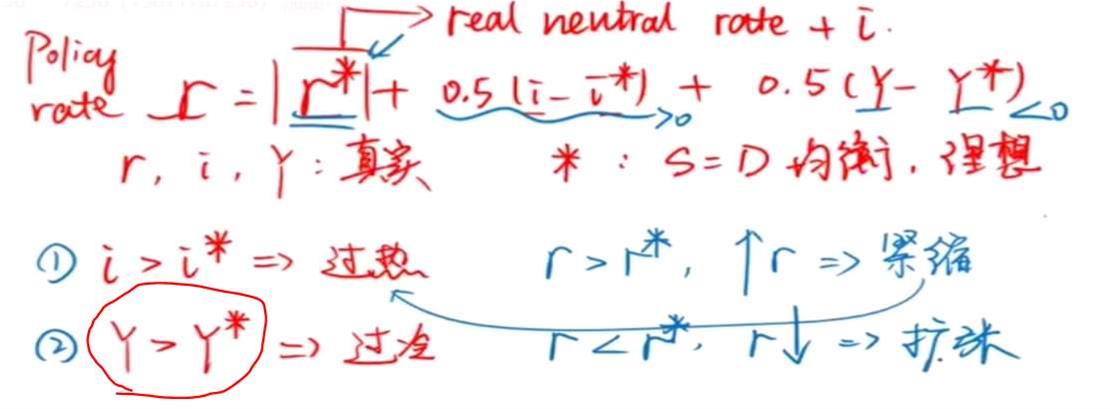 real neutral rate + i.
Policy rate r = |r*| + 0.5 (i - i*) + 0.5 (Y - Y*)
>0 <0
r, i, Y : 真实 * : S = D 均衡, 理想
① i > i* => 过热 r > r*, ↑r => 紧缩
② Y > Y* => 过冷 r < r*, r↓ => 扩张